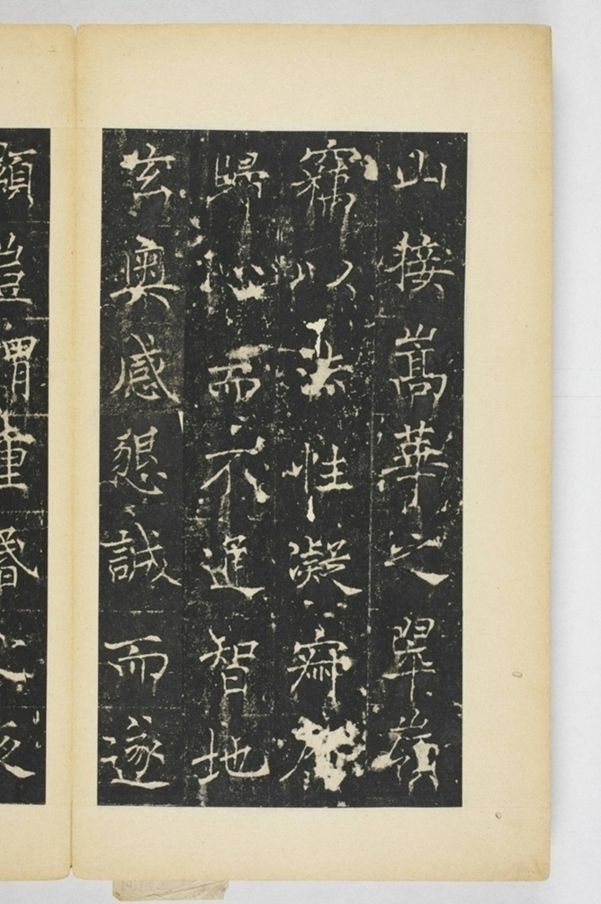 山接嵩華之翠嶺
竊以法性凝寂靡
歸心而不通智地
玄奧感懇誠而遂
顯豈謂重昏之夜